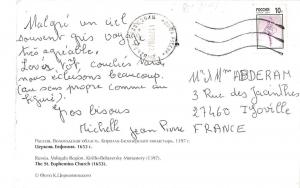 Malgré un ciel
souvent gris voyage
très agréable.
Levés tôt couchés tard
nous éclusons beaucoup.
(au sens propre comme au
figuré).
Gros bisous
Michelle Jean Pierre
РОССИЯ 10
M. & Mme ABDERAM
3 Rue des Jacinthes
27460 Igoville
FRANCE
Россия, Вологодская область, Кирилло-Белозерский монастырь, 1397 г.
Церковь Евфимия. 1653 г.
Russia. Vologda Region. Kirillo-Belozersky Monastery (1397).
The St. Euphemius Church (1653).